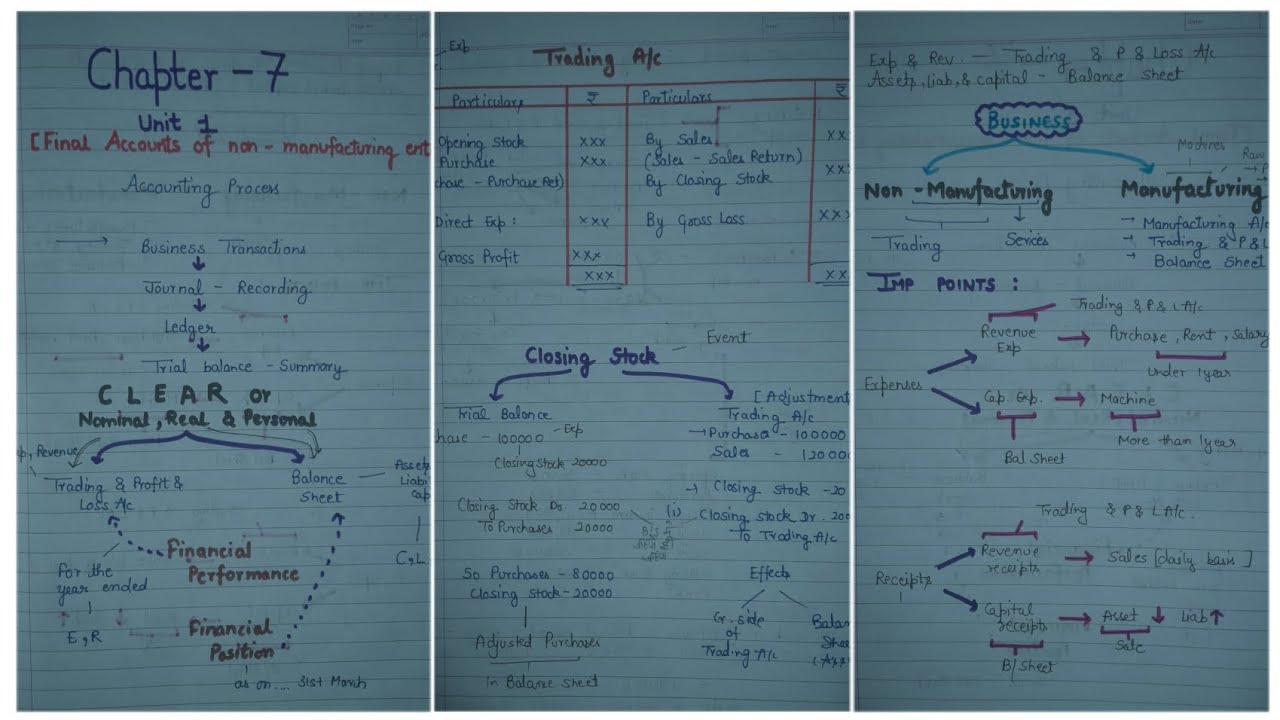 Chapter - 7
Unit 1
[Final Accounts of non-manufacturing ent
Accounting Process
Business Transactions
Journal - Recording
Ledger
Trial balance - Summary
C L E A R or
Nominal, Real & Personal
, Revenue
Trading & Profit &
Loss A/c
Balance
Sheet
Assets
Liab
Cap
C, L
Financial
Performance
for the
year ended
E, R
Financial
Position
as on .... 31st March
Exp
Trading A/c
Particulars ₹ Particulars ₹
Opening Stock xxx By Sales xx
Purchase xxx (Sales - Sales Return)
chase - Purchase Ret) By Closing Stock xx
Direct Exp: xxx By Gross Loss xx
Gross Profit xxx
xxx xx
Closing Stock
Event
Trial Balance
hase - 100000 - Exp
Closing Stock 20000
Closing Stock Dr. 20000
To Purchases 20000
So Purchases - 80000
Closing Stock - 20000
Adjusted Purchases
in Balance Sheet
[Adjustment
Trading A/c
Purchases - 100000
Sales - 120000
Closing Stock - 20
(i) Closing Stock Dr. 200
To Trading A/c
Effects
Cr. side
of
Trading A/c
Balan
Shee
Exp & Rev. - Trading & P & Loss A/c
Assets, liab, & capital - Balance sheet
BUSINESS
Machines
Raw
Non-Manufacturing
Manufacturing
Trading
Sevices
- Manufacturing A/c
- Trading & P & L
- Balance Sheet
IMP POINTS :
Trading & P & L A/c
Expenses
Revenue
Exp
Purchase, Rent, Salary
Under 1 year
Cap. Exp.
Machine
Bal Sheet
More than 1 year
Trading & P & L A/c.
Receipts
Revenue
receipts
Sales [daily basis]
Capital
receipts
Asset ↓ Liab ↑
Sale
B/Sheet